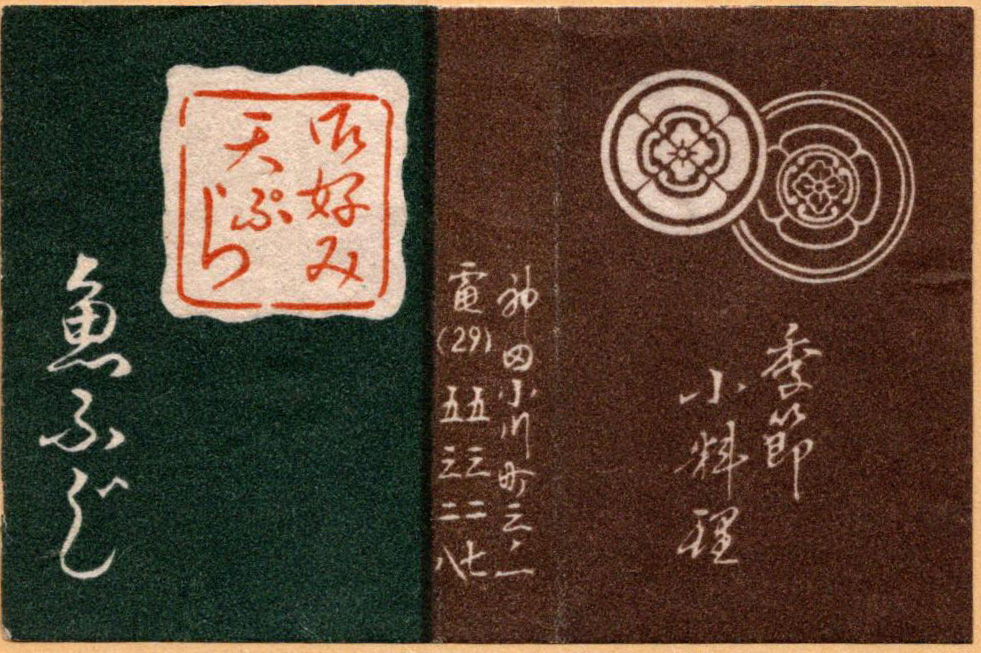 季節
小料理
神田小川町三ノ一
電(29)五三二七
五三二八
御好み
天ぷら
魚ふじ